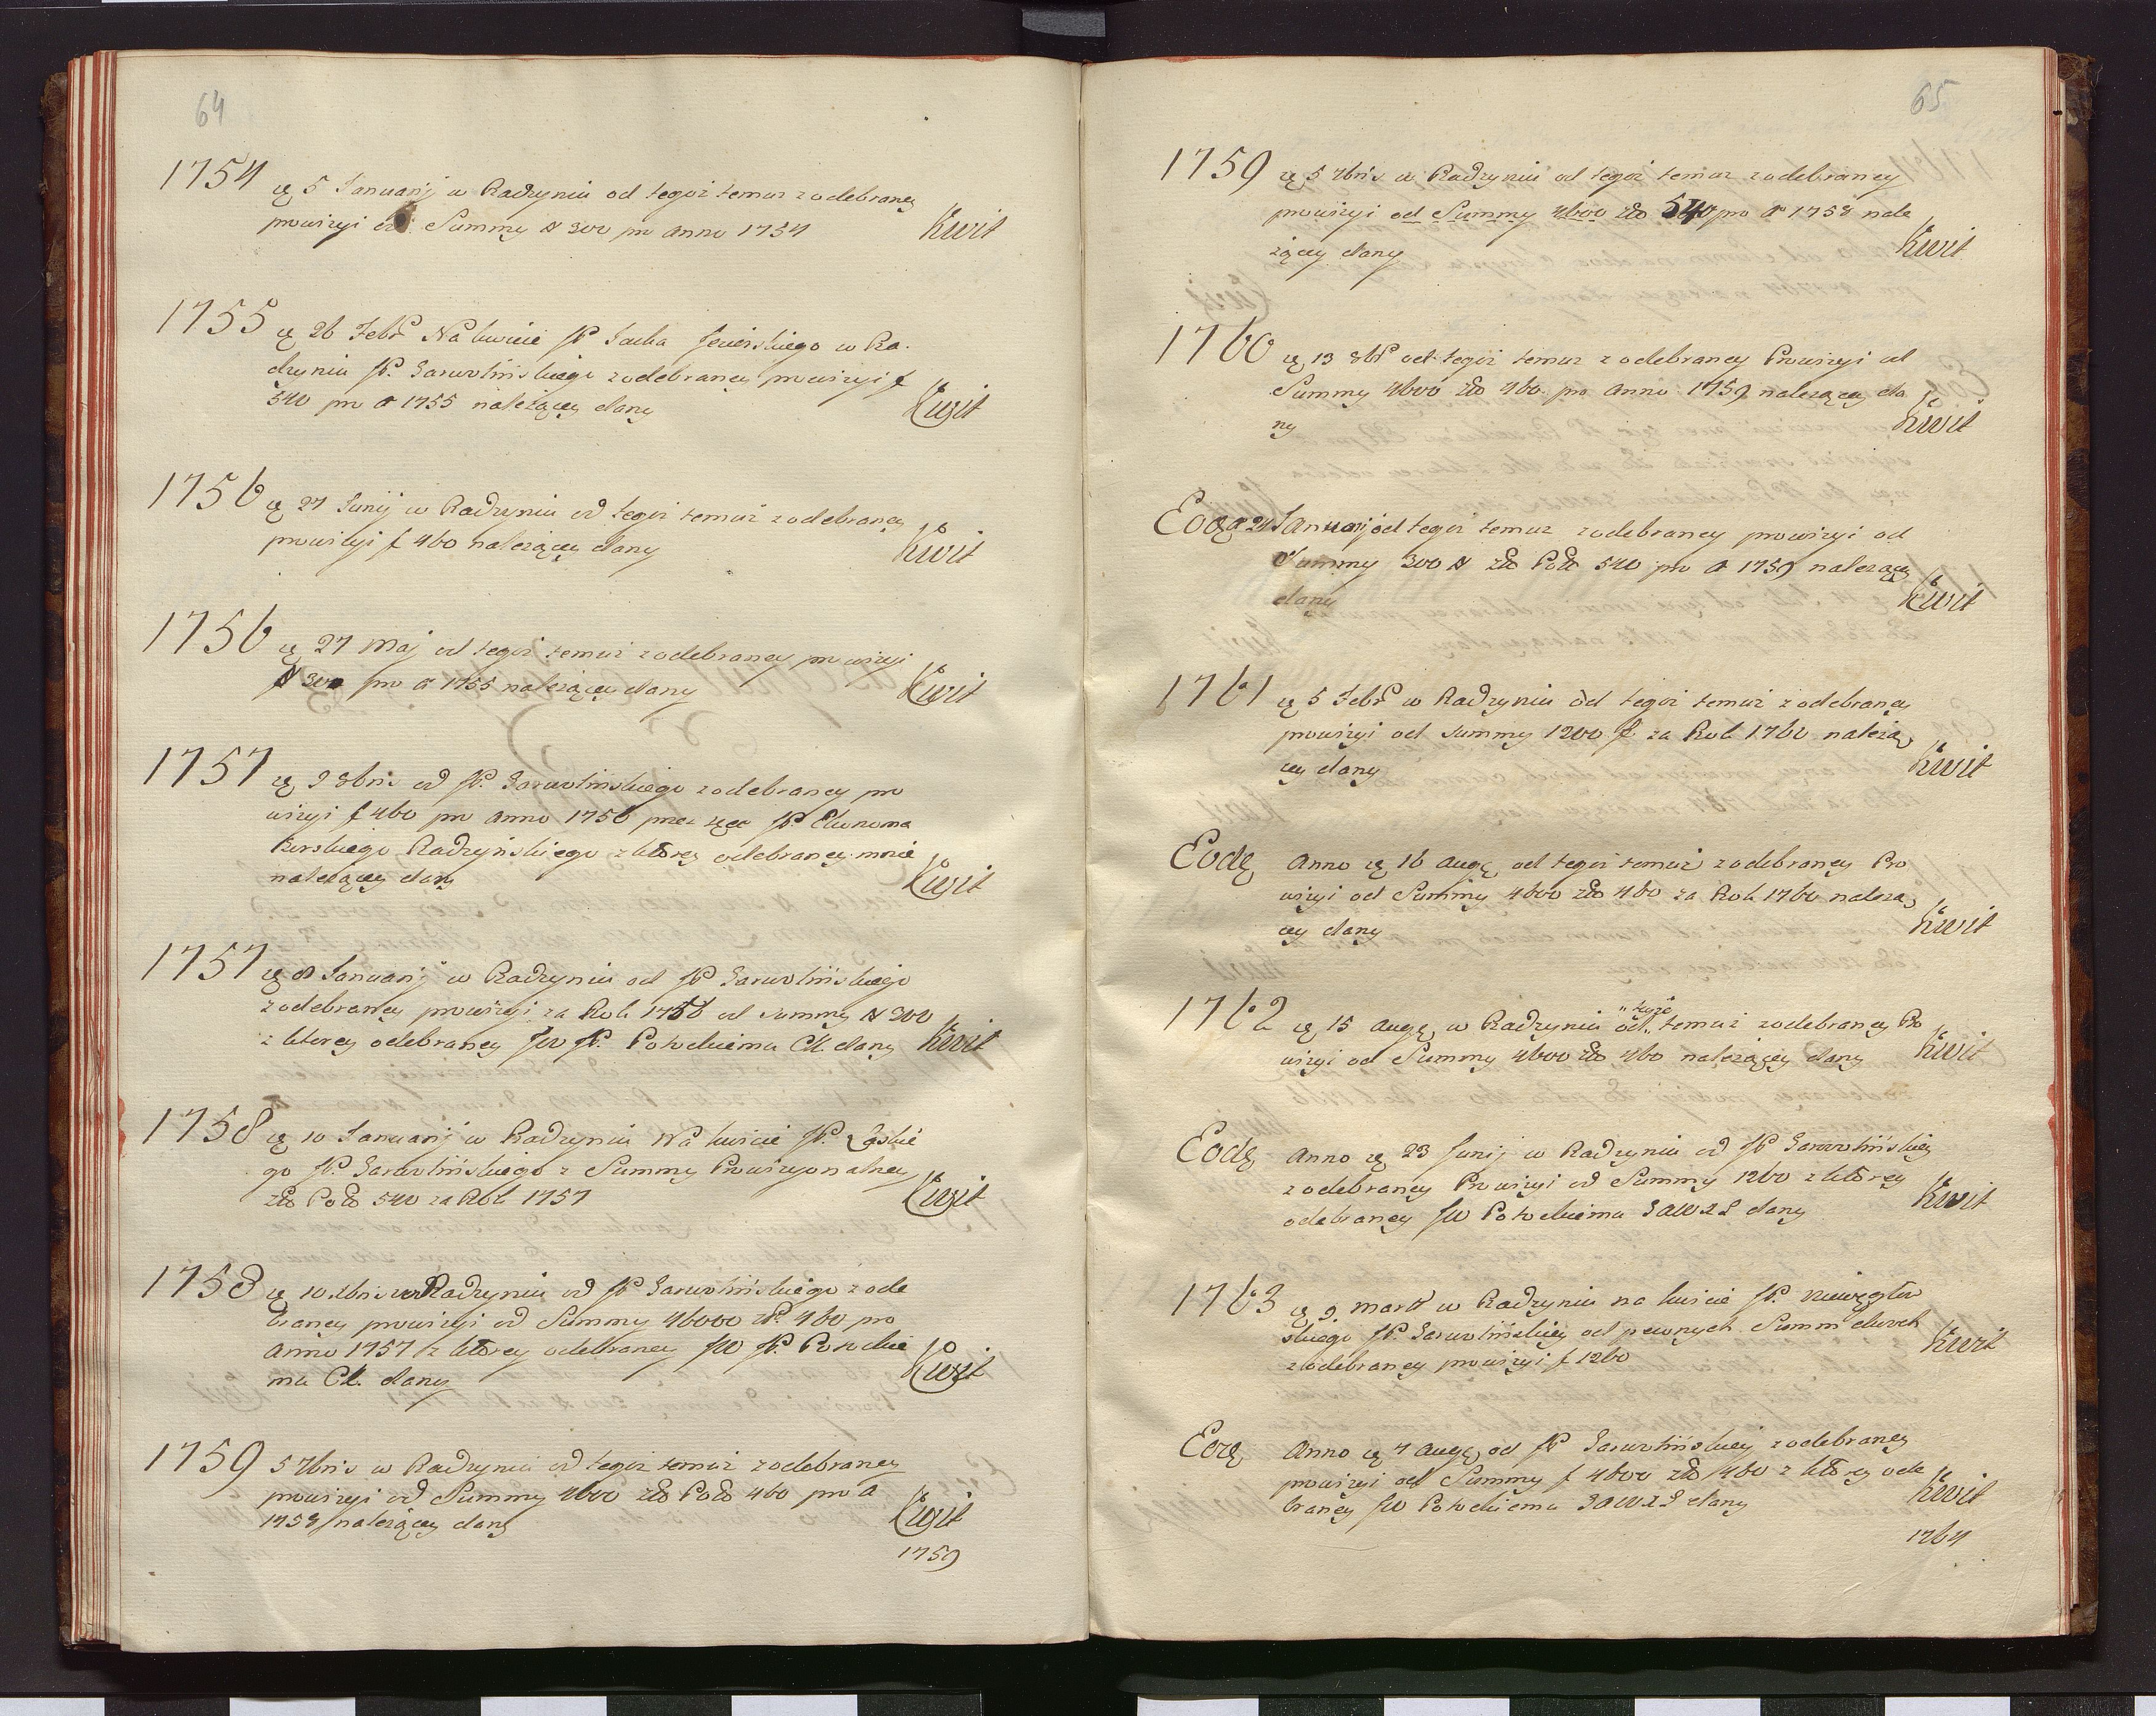 64
1754 ę 5 Januarij w Radzyniu od tegoż temuż z odebraney
prowizyi od Summy # 300 pro anno 1754 Kwit
1755 ę 26 Febr Na kwicie JP Jacka Jezierskiego w Ra-
dzyniu JP. Garwolińskiego z odebraney prowizyi f
540 pro A 1755 należącey dany Kwit
1756 ę 27 Junij w Radzyniu od tegoż temuż z odebraney
prowizyi f 460 należącey dany Kwit
1756 ę 27 Maj od tegoż temuż z odebraney prowizyi
# 300 pro A 1755 należącey dany Kwit
1757 ę 9 8bris od JP. Garwolińskiego z odebraney pro
wizyi f 460 pro anno 1756 przez ręce JP. Ekonoma
Radzyńskiego z ktorey odebraney mnie
należącey dany Kwit
1757 ę 8 Januarij w Radzyniu od JP Garwolińskiego
z odebraney prowizyi za Rok 1756 od summy # 300
z ktorey odebraney JW JP. Potockiemu CK. dany Kwit
1758 ę 10 Januarij w Radzyniu Na kwicie JP. Łaskie
go JP. Garwolińskiego z Summy Prowizyonalney
Zło Polo 540 za Rok 1757 Kwit
1758 ę 10 Xbris w Radzyniu od JP Garwolińskiego z ode
braney prowizyi od Summy 46000 zP. 460 pro
Anno 1757 z ktorey odebraney JW JP. Potockie
mu CK. dany Kwit
1759 5 7bris w Radzyniu od tegoż temuż z odebraney
prowizyi od Summy 4600 Zło Polo 460 pro A
1758 należącey dany Kwit
1759
65
1759 ę 5 7bris w Radzyniu od tegoż temuż z odebraney
prowizyi od Summy 4600 Zło 540 pro A 1758 nale
żącey dany Kwit
1760 ę 13 8br od tegoż temuż z odebraney Prowizyi od
Summy 4600 Zło 460 pro anno 1759 należącey da
ny Kwit
Eodę a 21 Januarij od tegoż temuż z odebraney prowizyi od
Summy 300 # Zło Polo 540 pro A 1759 należącey
dany Kwit
1761 ę 5 Febr w Radzyniu od tegoż temuż z odebraney
prowizyi od summy 1200 f za Rok 1760 należą
cey dany Kwit
Eodę Anno ę 16 Augę od tegoż temuż z odebraney Pro
wizyi od Summy 4600 zło 460 za Rok 1760 należą
cey dany Kwit
1762 ę 15 Augę w Radzyniu od " teyże temuż z odebraney Pro
wizyi od Summy 4600 zło 460 należącey dany Kwit
Eodę Anno ę 23 Junij w Radzyniu od JP Garwolińskiey
z odebraney Prowizyi od Summy 1260 z ktorey
odebraney JW Potockiemu GAWXL dany Kwit
1763 ę 9 Marti w Radzyniu na kwicie JP. Niewęgłow
skiego JP. Garwolińskiey od pewnych Summ dwoch
z odebraney prowizyi f 1260 Kwit
Eodę Anno ę 4 Augę od JP Garwolińskiey z odebraney
prowizyi od Summy f 4600 zło 460 z ktorey ode
braney JW Potockiemu GAWXL dany Kwit
1764